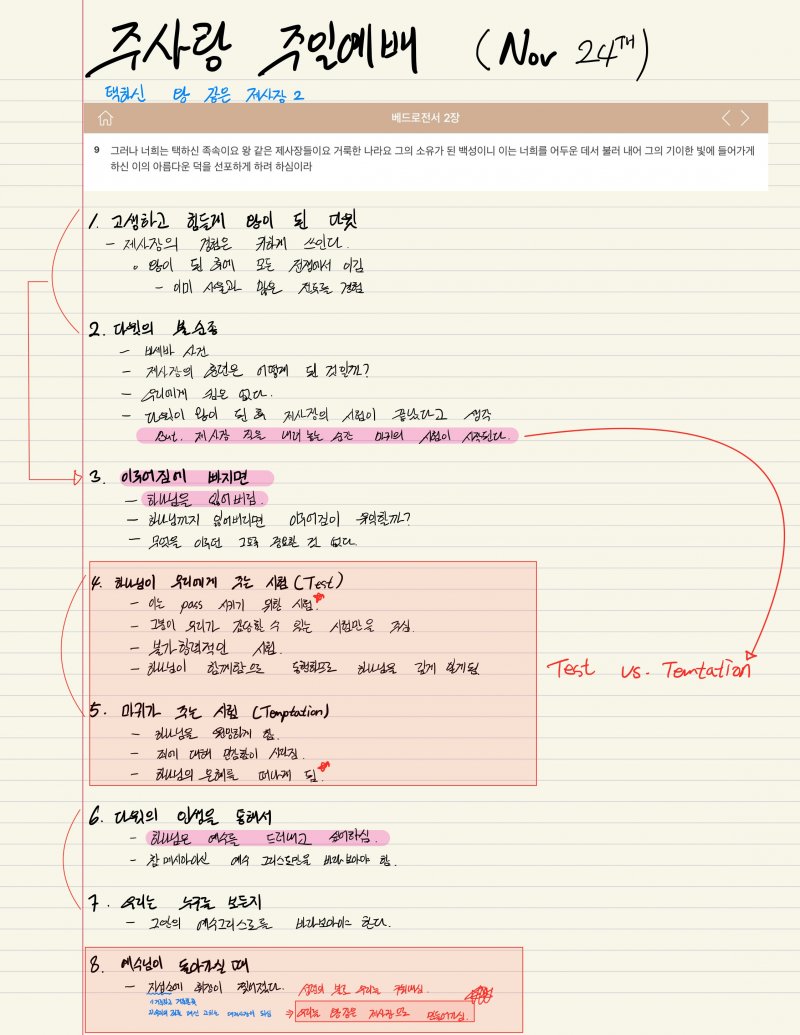 주사랑 주일예배 (Nov 24TH)
택하신 왕 같은 제사장 2
베드로전서 2장
9 그러나 너희는 택하신 족속이요 왕 같은 제사장들이요 거룩한 나라요 그의 소유가 된 백성이니 이는 너희를 어두운 데서 불러 내어 그의 기이한 빛에 들어가게
하신 이의 아름다운 덕을 선포하게 하려 하심이라
1. 고생하고 힘들게 왕이 된 다윗
- 제사장의 경험은 귀하게 쓰인다.
왕이 된 후에 모든 전쟁에서 이김
- 이미 사울과 많은 전투를 경험
2. 다윗의 불순종
- 밧세바 사건
- 제사장의 훈련은 어떻게 된 것인가?
- 우리에게 쉼은 없다.
- 다윗이 왕이 된 후 제사장의 시험이 끝났다고 생각
But, 제사장 직을 내려 놓는 순간 마귀의 시험이 시작된다.
3. 이루어짐에 빠지면
- 하나님을 잃어버림.
- 하나님까지 잃어버리면 이루어짐이 유익할까?
- 무엇을 이루던 그토록 중요할 것 없다.
4. 하나님이 우리에게 주는 시험 (Test)
- 이는 pass 시키기 위한 시험.
- 그분이 우리가 감당할 수 있는 시험만을 주심.
- 불가항력적인 시험.
- 하나님이 함께함으로 동행함으로 하나님을 깊게 알게됨
Test vs. Temtation
5. 마귀가 주는 시험 (Temptation)
- 하나님을 원망하게 함.
- 죄에 대해 민감함이 사라짐.
- 하나님의 은혜를 떠나게 됨.
6. 다윗의 인생을 통해서
- 하나님은 예수를 드러내고 싶어하심.
- 참 메시아이신 예수 그리스도만을 바라보아야 함.
7. 우리는 누구를 보든지
- 그안의 예수그리스도를 바라보아야 한다.
8. 예수님이 돌아가실 때
- 지성소에 휘장이 찢어졌다. 성령의 불로 우리는
우리는 왕 같은 제사장으로 만들어가심.